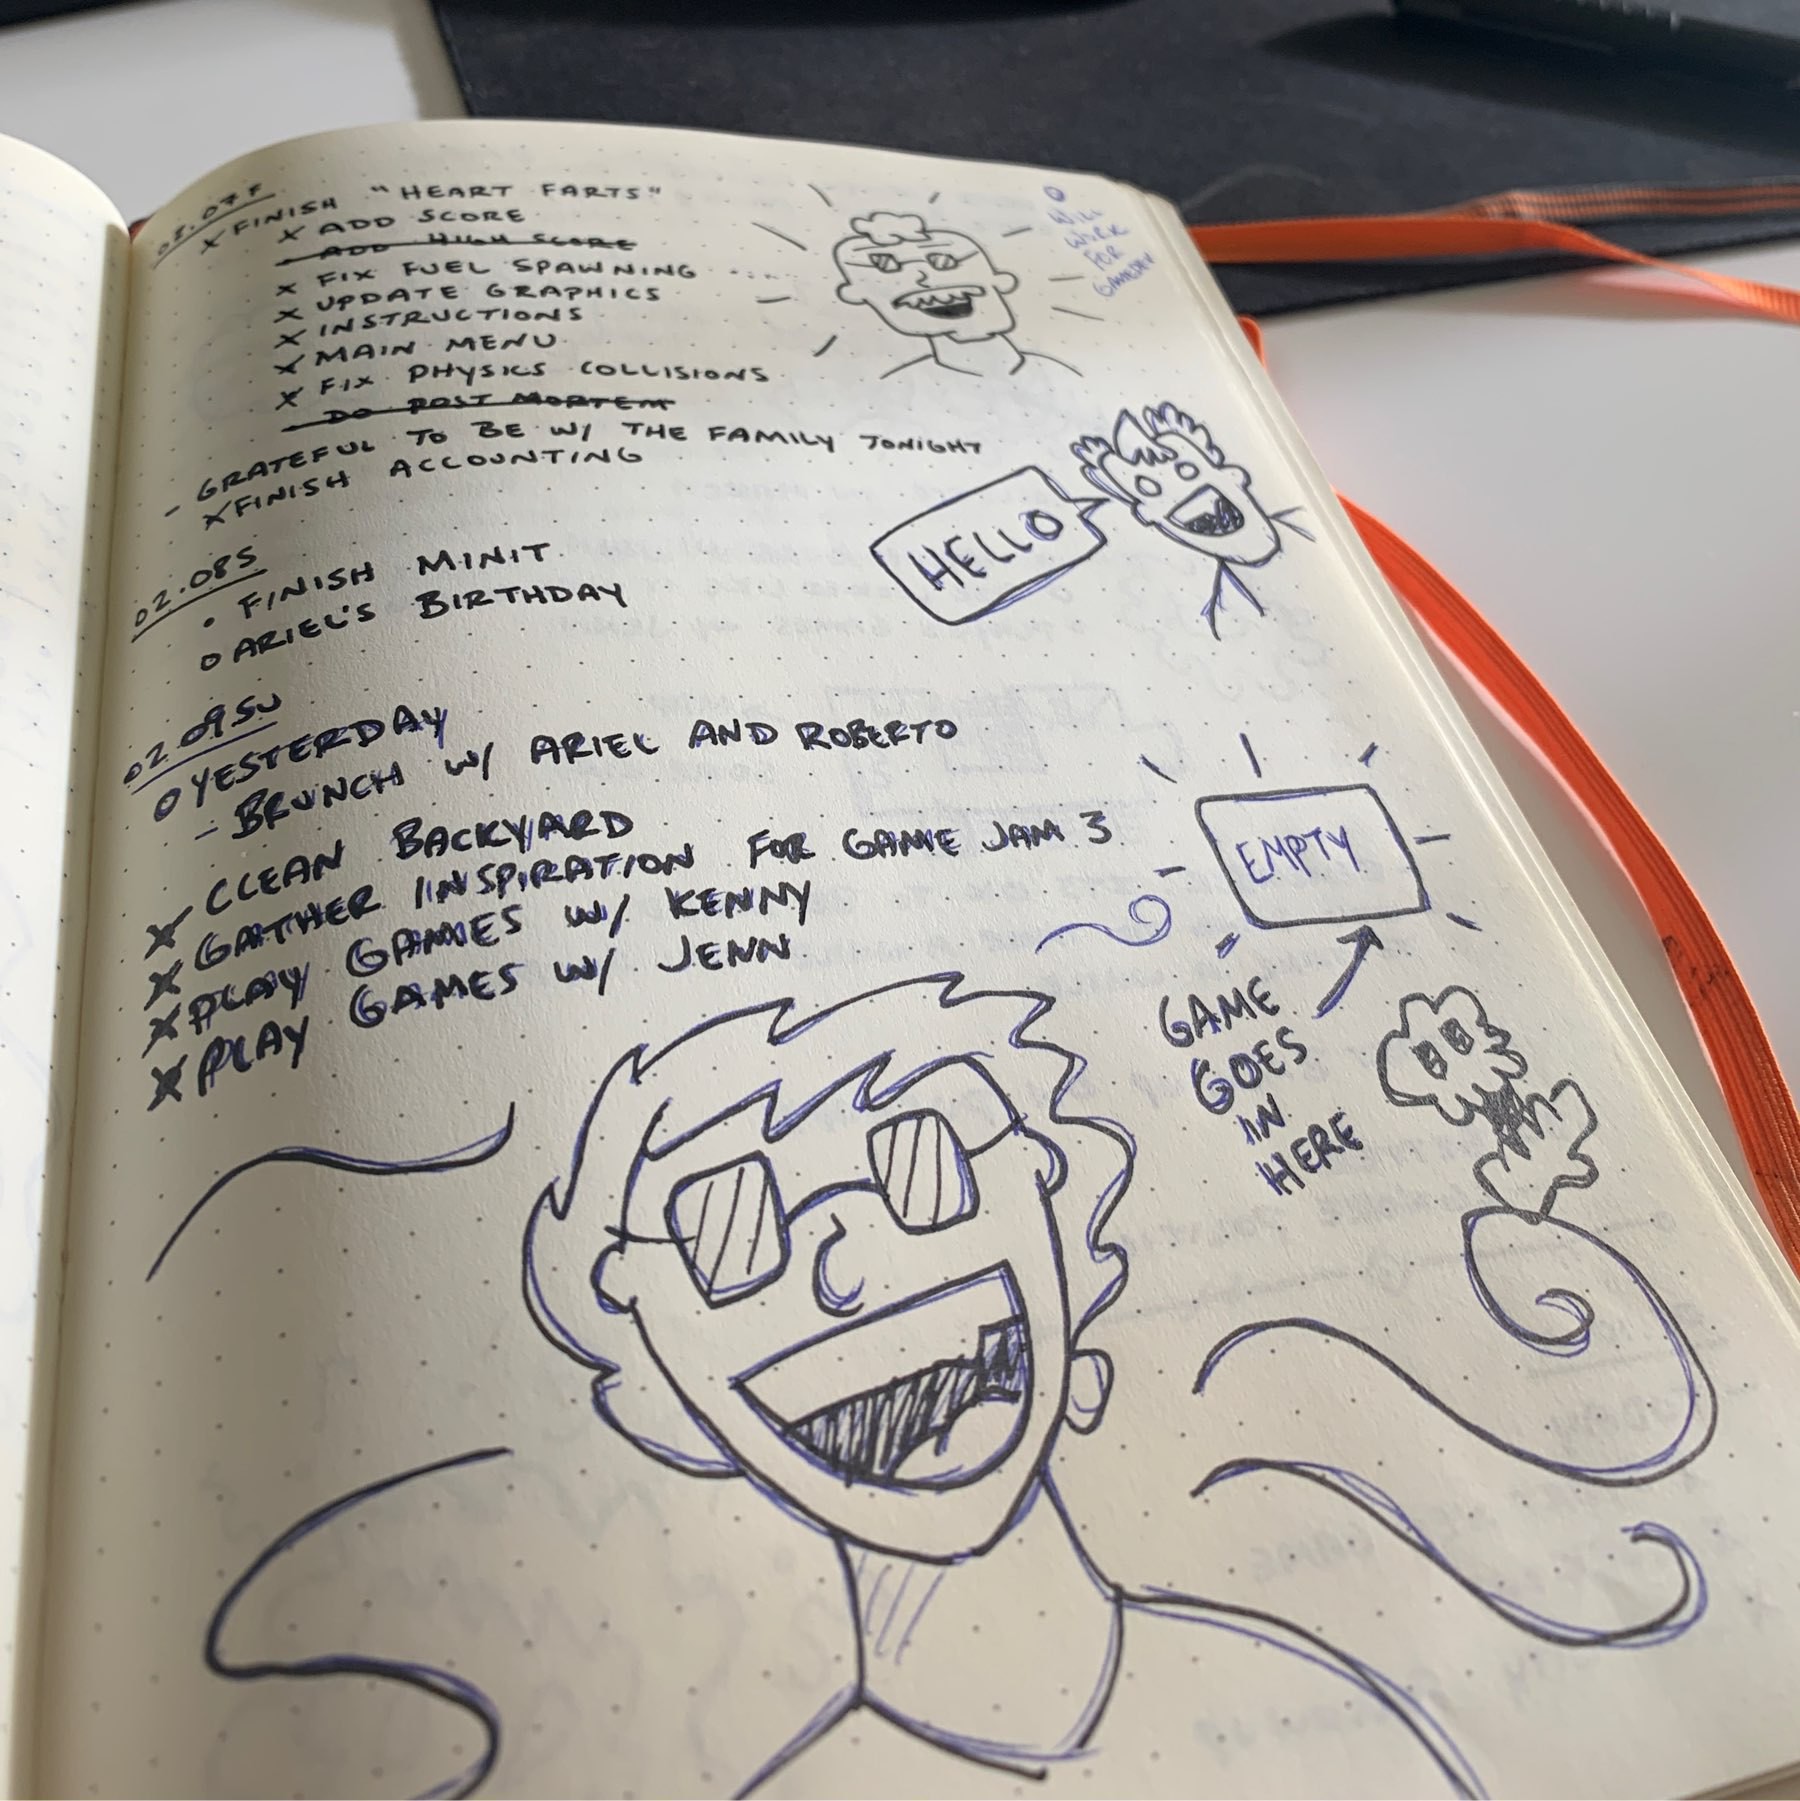 02.07F
x FINISH "HEART FARTS"
x ADD SCORE
· ADD HIGH SCORE
x FIX FUEL SPAWNING
x UPDATE GRAPHICS
x INSTRUCTIONS
x MAIN MENU
x FIX PHYSICS COLLISIONS
· DO POST MORTEM
- GRATEFUL TO BE W/ THE FAMILY TONIGHT
x FINISH ACCOUNTING
WILL
WORK
FOR
GAMEDEV
HELLO
02.08S
· FINISH MINIT
O ARIEL'S BIRTHDAY
02.09SU
O YESTERDAY
- BRUNCH W/ ARIEL AND ROBERTO
x CLEAN BACKYARD
x GATHER INSPIRATION FOR GAME JAM 3
x PLAY GAMES W/ KENNY
x PLAY GAMES W/ JENN
EMPTY
GAME
GOES
IN
HERE